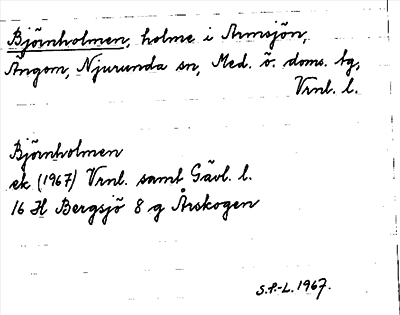 Björnholmen, holme i Armsjön,
Ängom, Njurunda sn, Med. ö. doms. tg,
Vrnl. l.
Björnholmen
ek (1967) Vrnl. samt Gävl. l.
16 H Bergsjö 8 g Årskogen
S.P.-L. 1967.